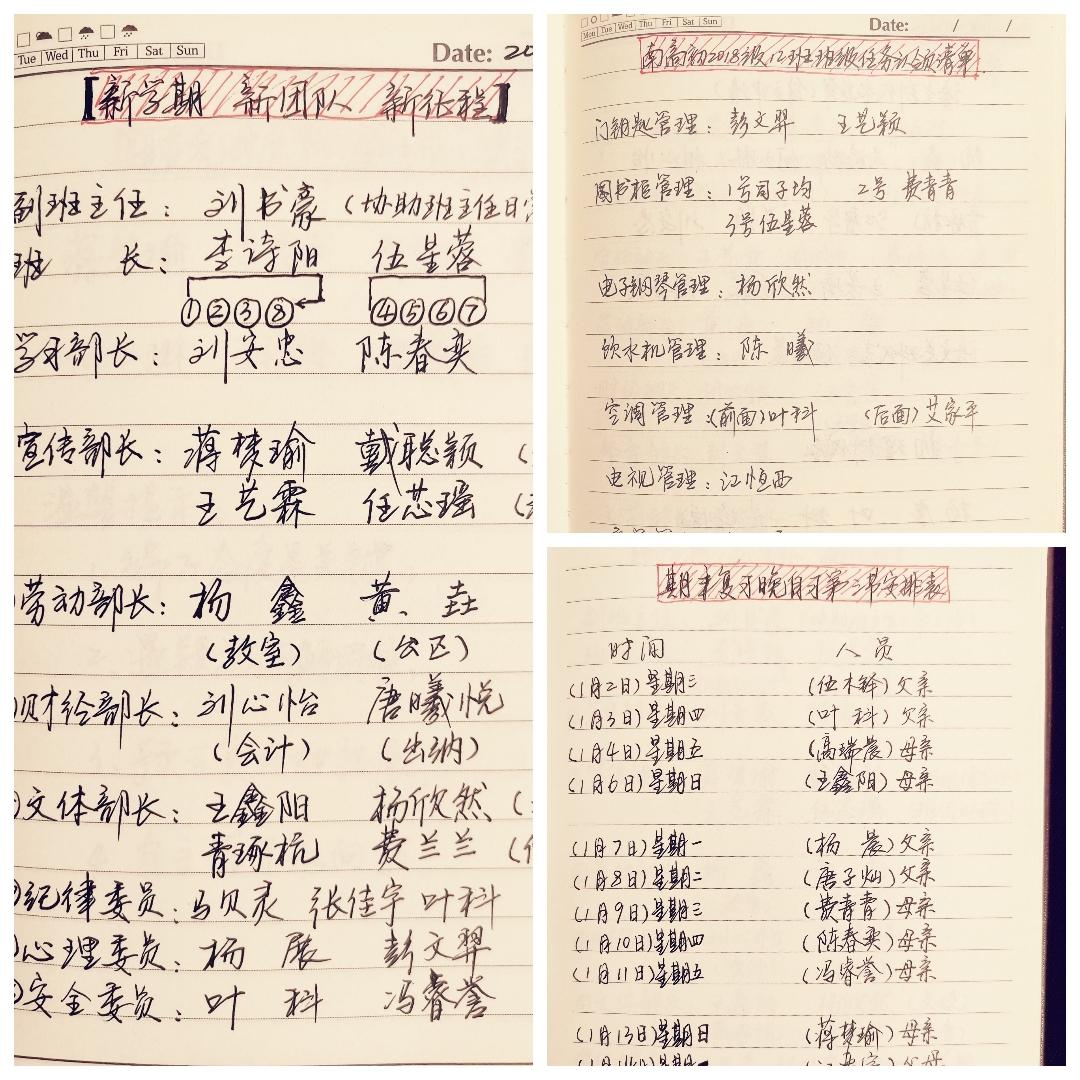 Tue Wed Thu Fri Sat Sun
Date: 20
【新学期 新团队 新征程】
副班主任：刘书豪（协助班主任日常
班 长：李诗阳 伍星蓉
①②③⑧ ④⑤⑥⑦
学习部长：刘安忠 陈春奕
宣传部长：蒋梦瑜 戴聪颖（
王艺霖 任芯瑶（
劳动部长：杨 鑫 黄 垚
（教室） （公区）
财经部长：刘心怡 唐曦悦
（会计） （出纳）
文体部长：王鑫阳 杨欣然（
青琢杭 费兰兰（
纪律委员：马贝灵 张佳宇 叶科
心理委员：杨 展 彭文羿
安全委员：叶 科 冯睿誉
Mon Tue Wed Thu Fri Sat Sun
Date: / /
南高初2018级12班班级任务认领清单
门钥匙管理：彭文羿 王艺颖
图书柜管理：1号司子均 2号费青青
3号伍星蓉
电子钢琴管理：杨欣然
饮水机管理：陈 曦
空调管理：（前面）叶科 （后面）艾家平
电视管理：江恒西
期末复习晚自习第三节安排表
时间 人员
（1月2日）星期三 （伍木锌）父亲
（1月3日）星期四 （叶 科）父亲
（1月4日）星期五 （高瑞晨）母亲
（1月6日）星期日 （王鑫阳）母亲
（1月7日）星期一 （杨 晨）父亲
（1月8日）星期二 （唐子灿）父亲
（1月9日）星期三 （费青青）母亲
（1月10日）星期四 （陈春奕）母亲
（1月11日）星期五 （冯睿誉）母亲
（1月13日）星期日 （蒋梦瑜）母亲